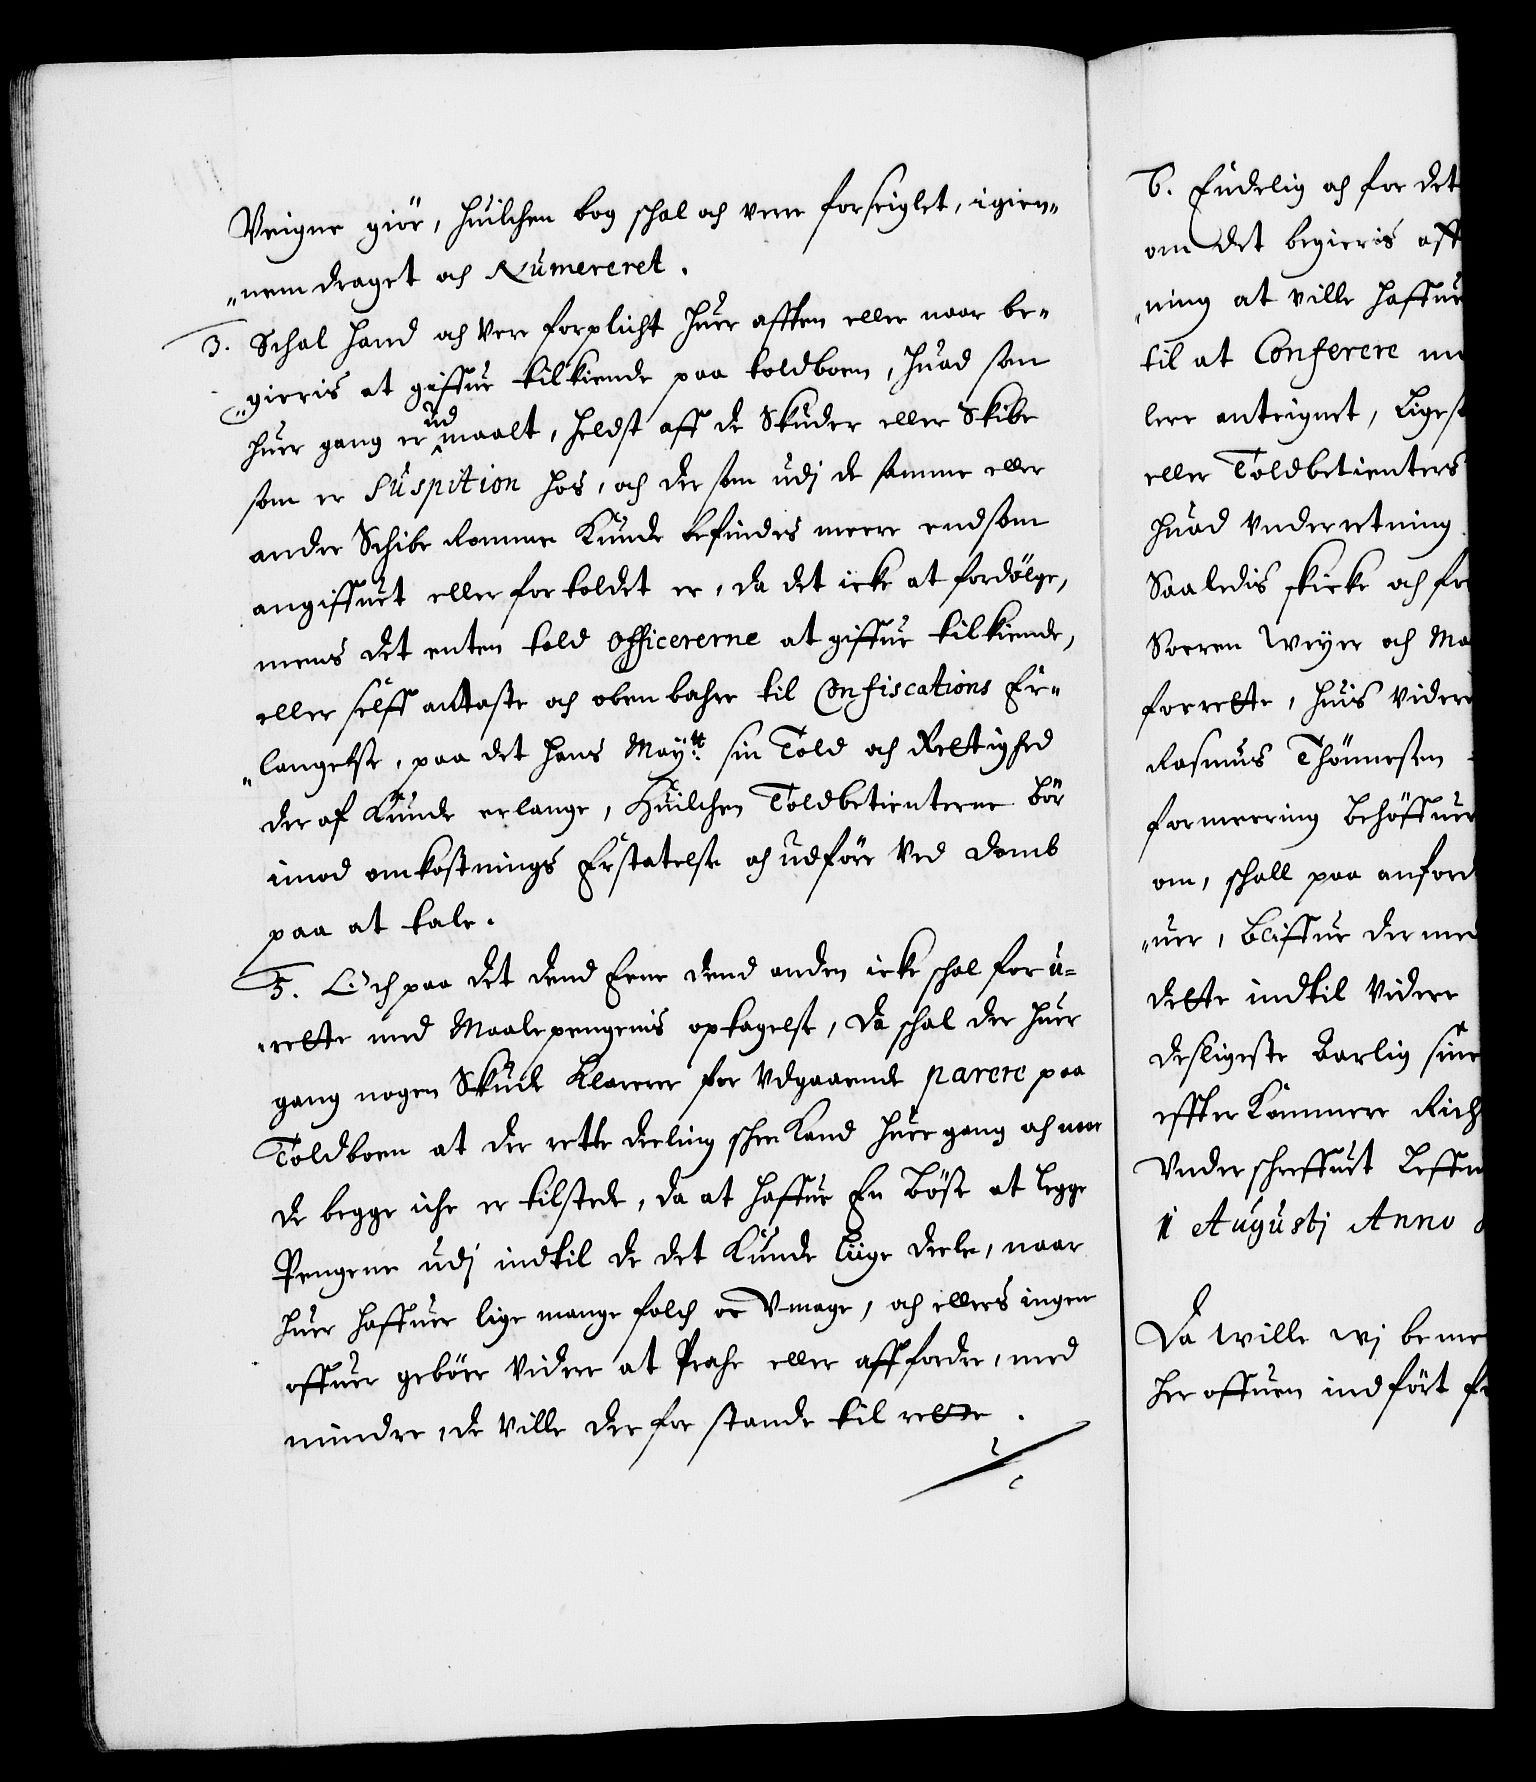 Veigne giör, huilchen bog schal och vere forseiglet, igien„
„nem draget och Numereret.
3. Schal hand och Vere forplicht huer afften eller naar be„
„gieris at giffue tilkiende paa toldboen, huad som
huer gang er ud maalt, heldst aff de Skuder eller Skibe
som er Suspition hos, och der som udj de samme eller
andre Schibe Romme Kunde befindes meere endsom
angiffuet eller fortoldet er, da det icke at fordölge,
mens det enten told officererne at giffue tilkiende,
eller selff antaste och obenbahre til Confiscations Er„
„langelse, paa det hans Maytt sin Told och Rettighed
der af Kunde erlange, Huilchen Toldbetienterne bör
imod omkostnings Erstatelse och udföre Ved domb
paa at tale.
5. Och paa det dend Eene dend anden icke schal for u„
„rette med Maalepengenis optagelse, da schal der huer
gang nogen Skude Klarerer for Udgaaende parere paa
Toldboen at der rette deeling schee Kand huer gang och naar
de begge iche er tilstede, da at haffue En böse at legge
Pengene udj indtil de det Kunde liige deele, naar
huer haffuer lige mange folch oc Vmage, och ellers ingen
offuer gebör videre at Prahe eller affordre, med
mindre, de ville der for stande til rette.
6. Endelig och for det
om det begieris aff
„ning at ville haffue
til at Conferere
lere anteignet, Ligest
eller Toldbetienters
huad Underretning
Saaledis skicke och
Soeren Weyer och
forrette, huis videre
Rasmus Thönnesen
formeering behöffuer
om, schall paa anford
„uer, bliffue der med
dette indtil Videre
desligeste Aarlig sine
effter Kammere
Under schreffuet
1 Augustj Anno
Da wille wj beme
her offuen indfört